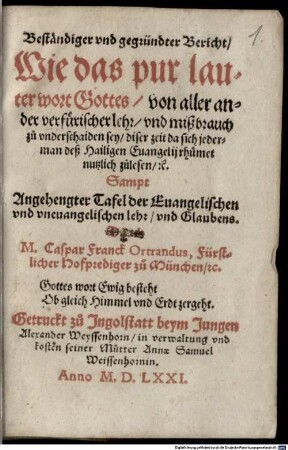 1.
Beständiger vnd gegründter Bericht/
Wie das pur lau-
ter wort Gottes/ von aller an-
der verfürischer lehr/ vnd mißbrauch
zů vnderschaiden sey/ diser zeit da sich jeder-
man deß Hailigen Euangelij rhümet
nutzlich zůlesen/ ꝛc.
Sampt
Angehengter Tafel der Euangelischen
vnd vneuangelischen lehr/ vnd Glaubens.
M. Caspar Franck Ortrandus, Fürst-
licher Hofprediger zů München/ꝛc.
Gottes wort Ewig besteht
Ob gleich Himmel vnd Erdt zergeht.
Getruckt zů Ingolstatt beym Jungen
Alexander Weyssenhorn/ in verwaltung vnd
kostẽn seiner Můtter Annæ Samuel
Weissenhornin.
Anno M. D. LXXI.